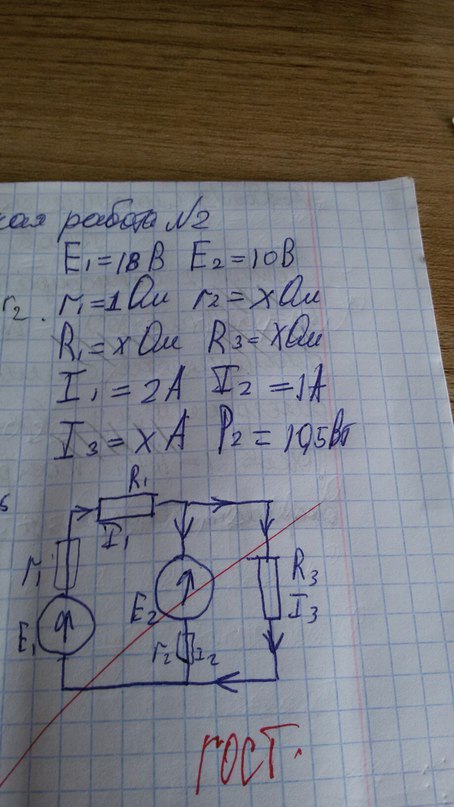 кая работа №2
E1=18В E2=10В
r2. r1=1Ом r2=xОм
R1=xОм R3=xОм
I1=2А I2=1А
I3=xА P2=10,5Вт
R1
I1
r1
E1
E2
r2 I2
R3
I3
ГОСТ.